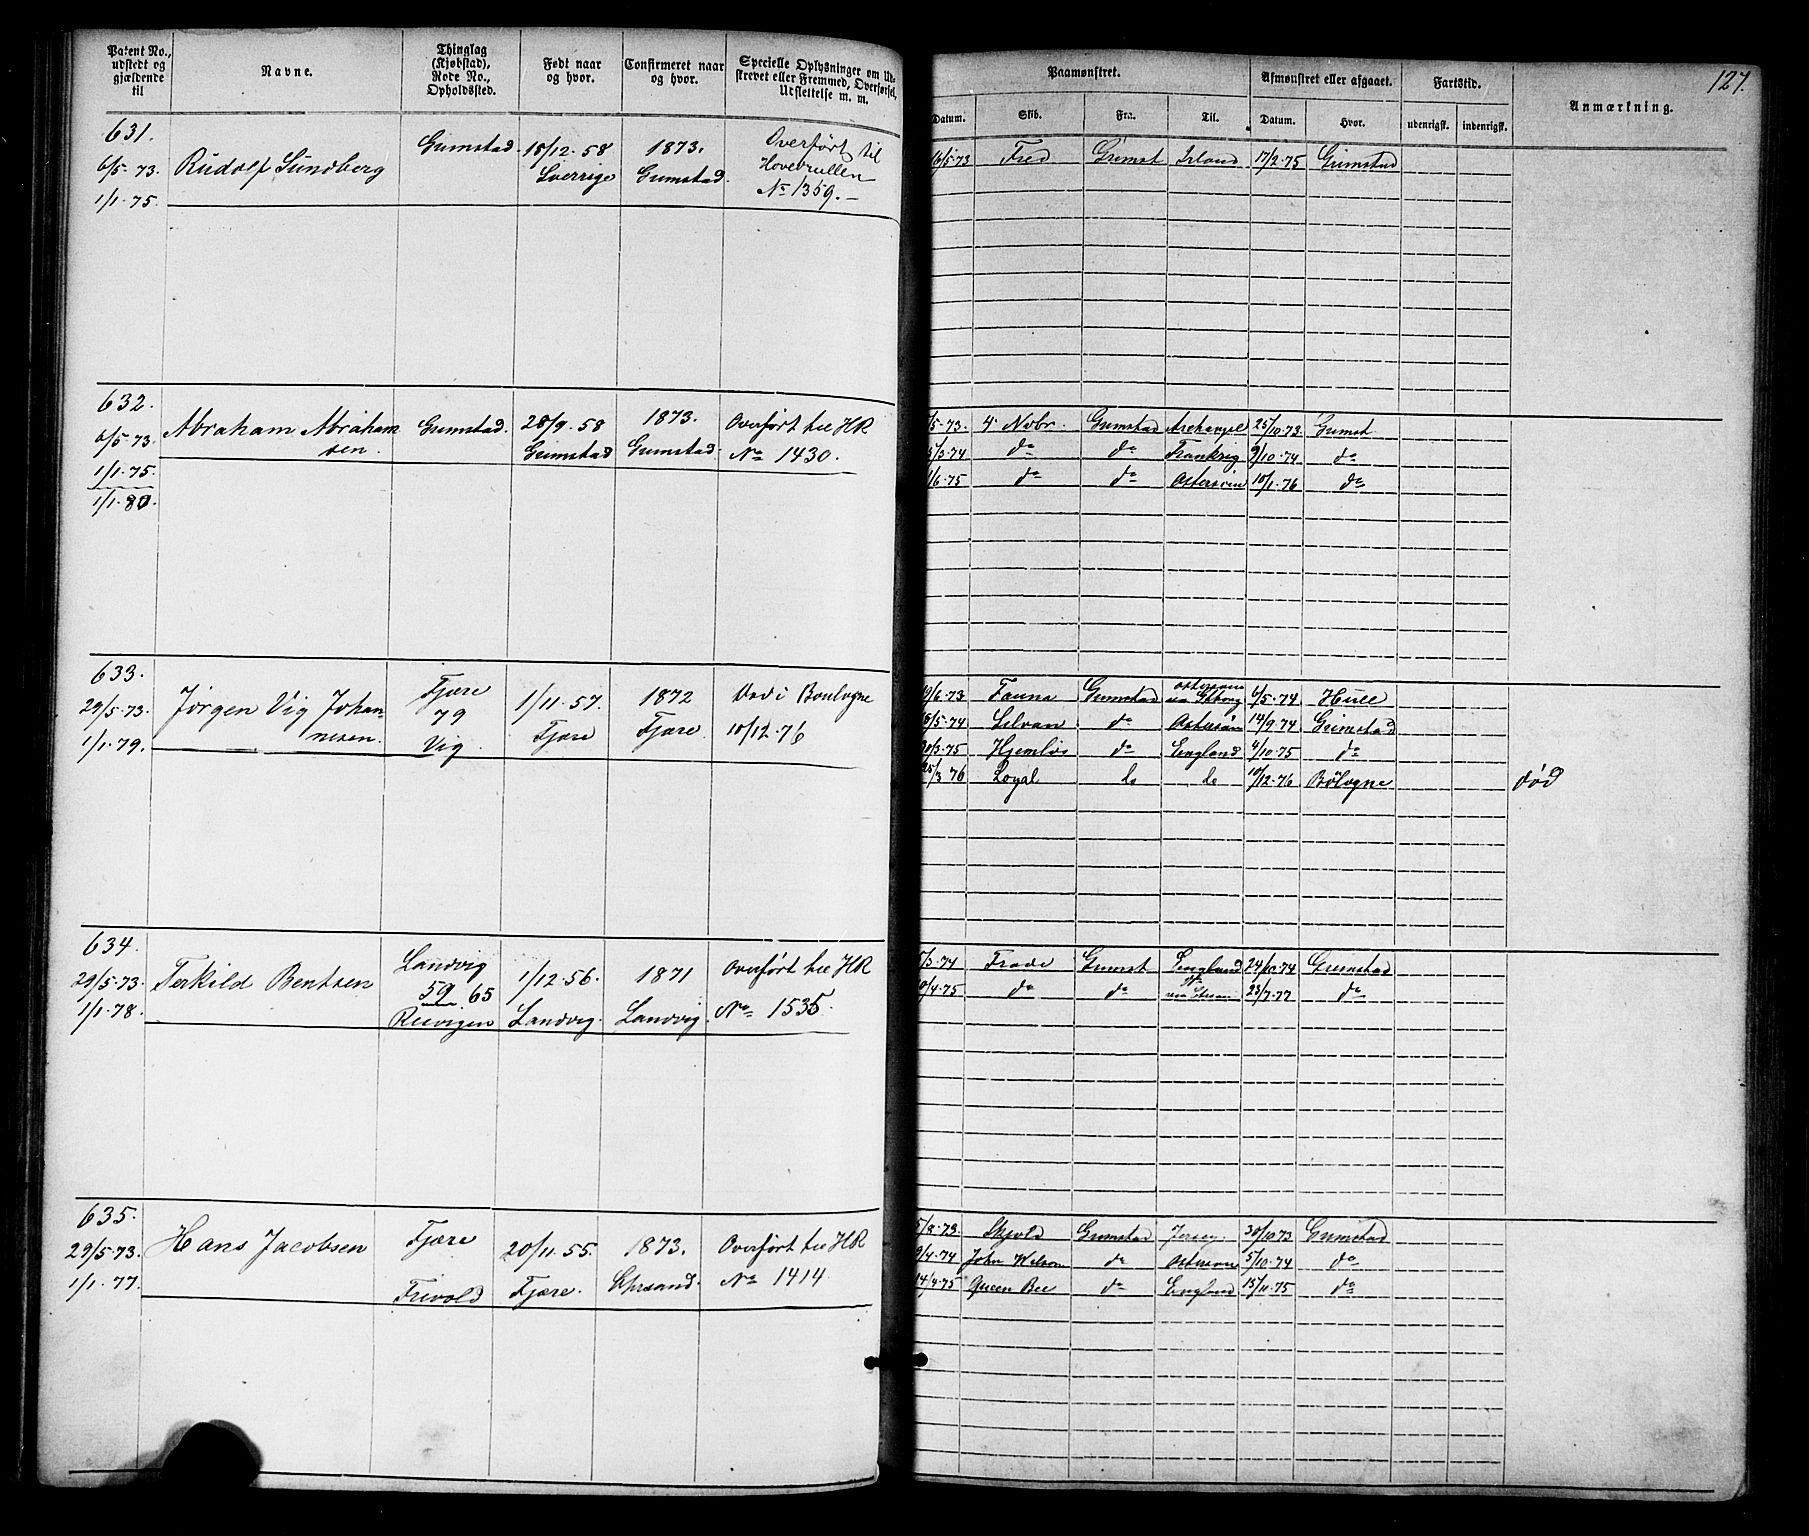 127.
Patent No., udstedt og gjældende til
Navne.
Thinglag (Kjøbstad), Rode No., Opholdssted.
Født naar og hvor.
Confirmeret naar og hvor.
Specielle Oplysninger om Udskrevet eller Fremmed, Overførsel, Udslettelse m. m.
Paamønstret.
Afmønstret eller afgaaet.
Fartstid.
Anmærkning.
Datum. Skib. Fra. Til. Datum. Hvor. udenrigsk. indenrigsk.
631.
6/5-73.
1/1-75.
Rudolf Sundberg
Grimstad
18/12-58
Sverrige
1873.
Grimstad.
Overført til
Hovedrullen
No 1359.-
6/5-73 Fred Grimst Irland 17/2-75 Grimstad
632.
6/5-73.
1/1-75.
1/1-80.
Abraham Abraham
sen.
Grimstad.
28/9-58
Grimstad
1873.
Grimstad.
Overført til HR
No 1430.
/5-73. 4. Nvbr. Grimstad Archangel 25/10-73 Grimst
/3-74 do do Frankrig 9/10-74 do
/6-75 do do Østersøen 18/1-76 do
633.
29/5-73.
1/1-79.
Jørgen Vig Johan-
nesen.
Fjære
79
Vig.
1/11-57.
Fjære
1872
Fjære.
Død i Boulogne
10/12-76
/6-73 Fauna Grimstad Østersøen 6/5-74 Hull
/5-74 Silvan do Østersøen 14/9-74 Grimstad
/3-75 Hjemløs do England 4/10-75 do
25/3 76 Loyal do do 10/12-76 Bölogne død
634.
29/5-73.
1/1-78.
Terkild Bentsen
Landvig
59 65
Reevigen
1/12-56.
Landvig.
1871
Landvig.
Overført til HR
No 1535.
/3-74 Frode Grimst England 24/10-74 Grimstad
/4-75 do do 23/7-77 do
635.
29/5-73.
1/1-77.
Hans Jacobsen
Fjære
Frivold
20/11-55.
Fjære.
1873.
Chrsand.
Overført til HR
No 1414
5/8-73 Skjold Grimstad Jersey 30/10 73 Grimstad
9/4-74 John Wilson do Østersøen 5/10-74 do
14/4-75 Queen Bee do England 15/11-75 do